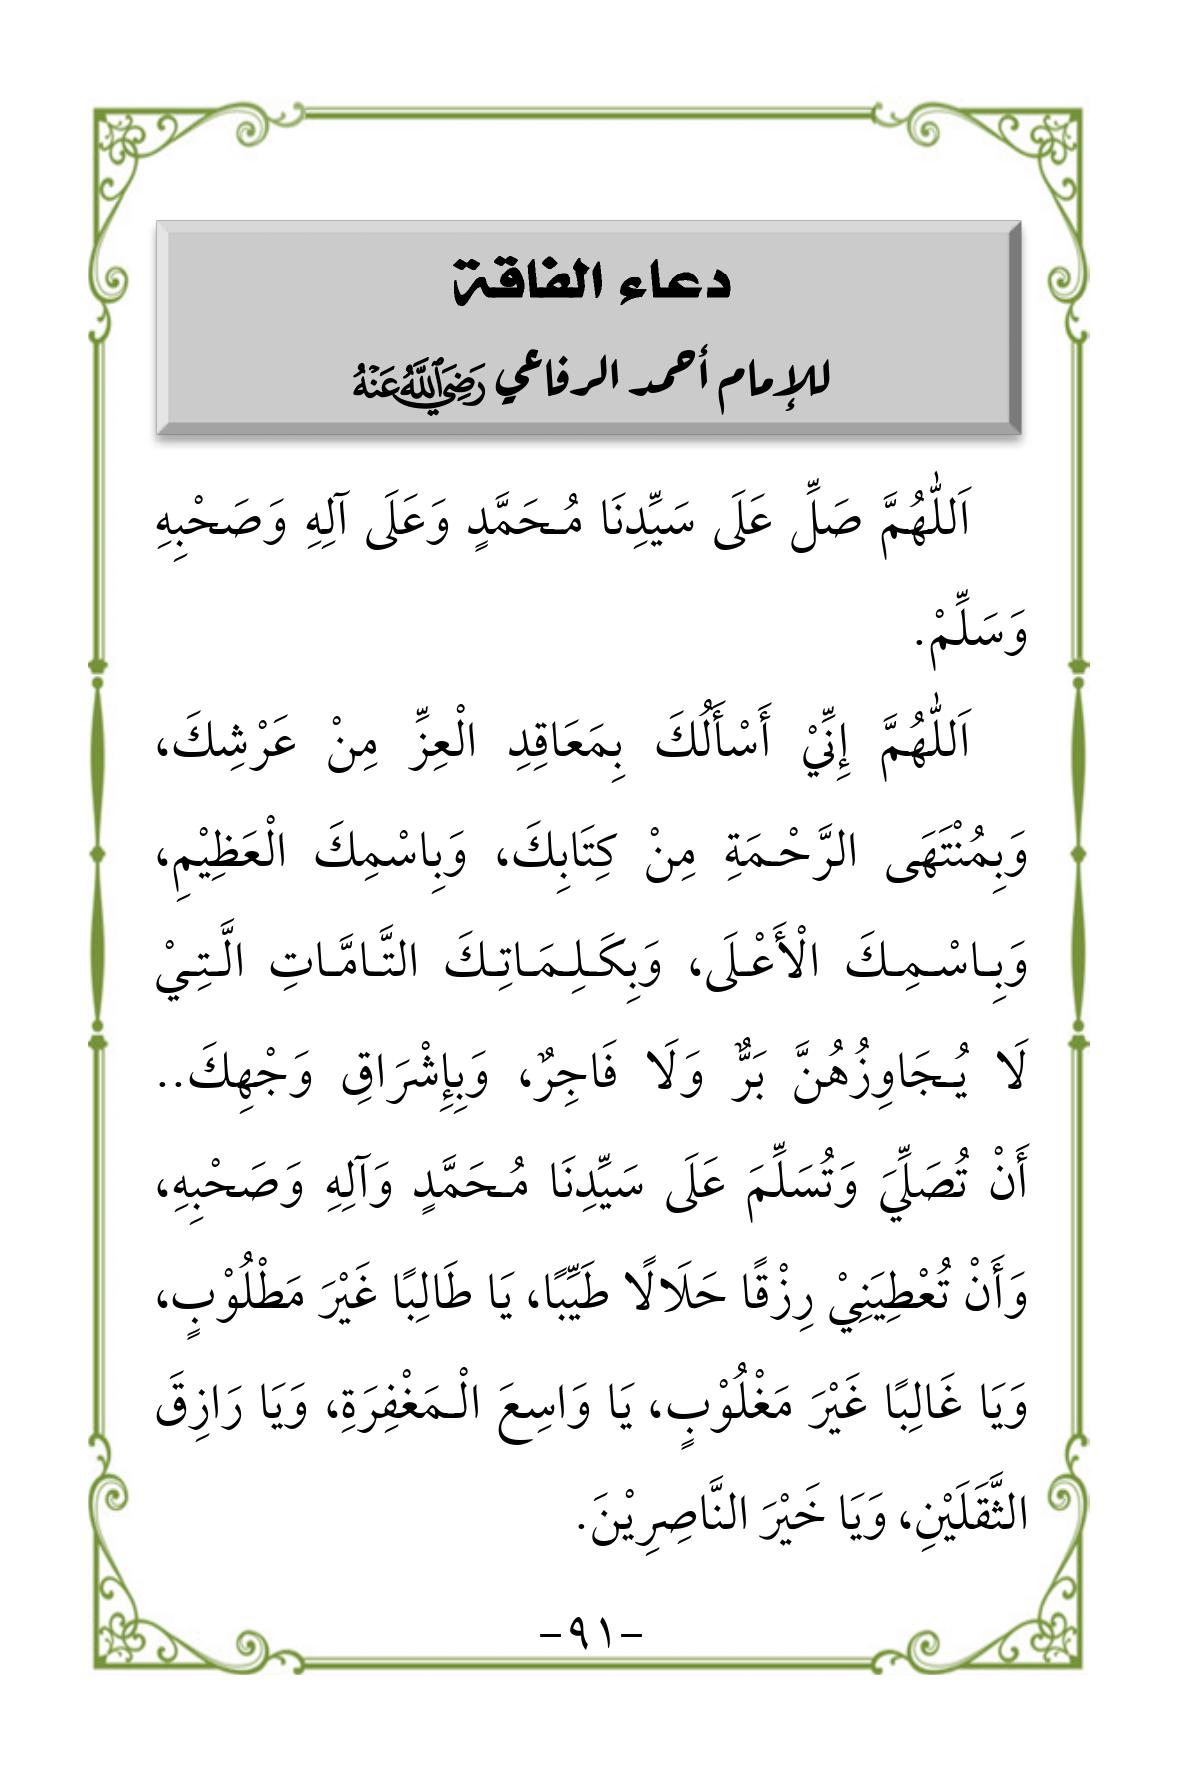 دعاء الفاقة
للإمام أحمد الرفاعي رَضِيَ اللَّهُ عَنْهُ
اَللّٰهُمَّ صَلِّ عَلَى سَيِّدِنَا مُحَمَّدٍ وَعَلَى آلِهِ وَصَحْبِهِ
وَسَلِّمْ.
اَللّٰهُمَّ إِنِّيْ أَسْأَلُكَ بِمَعَاقِدِ الْعِزِّ مِنْ عَرْشِكَ،
وَبِمُنْتَهَى الرَّحْمَةِ مِنْ كِتَابِكَ، وَبِاسْمِكَ الْعَظِيْمِ،
وَبِاسْمِكَ الْأَعْلَى، وَبِكَلِمَاتِكَ التَّامَّاتِ الَّتِيْ
لَا يُجَاوِزُهُنَّ بَرٌّ وَلَا فَاجِرٌ، وَبِإِشْرَاقِ وَجْهِكَ..
أَنْ تُصَلِّيَ وَتُسَلِّمَ عَلَى سَيِّدِنَا مُحَمَّدٍ وَآلِهِ وَصَحْبِهِ،
وَأَنْ تُعْطِيَنِيْ رِزْقًا حَلَالًا طَيِّبًا، يَا طَالِبًا غَيْرَ مَطْلُوْبٍ،
وَيَا غَالِبًا غَيْرَ مَغْلُوْبٍ، يَا وَاسِعَ الْمَغْفِرَةِ، وَيَا رَازِقَ
الثَّقَلَيْنِ، وَيَا خَيْرَ النَّاصِرِيْنَ.
-٩١-